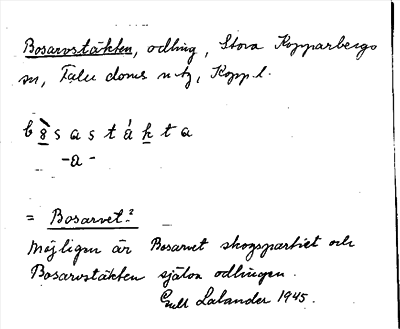 Bosarvstäkten, odling, Stora Kopparbergs
sn, Falu doms. u. tg, Kopp. l.
bo̱sastákta
-a-
= Bosarvet?
Möjligen är Bosarvet skogspartiet och
Bosarvstäkten själva odlingen.
Lalander 1945.